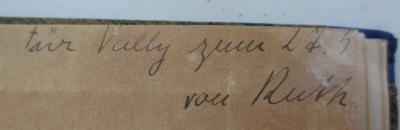 Für Vally zum 27. 4.
von Ruth.